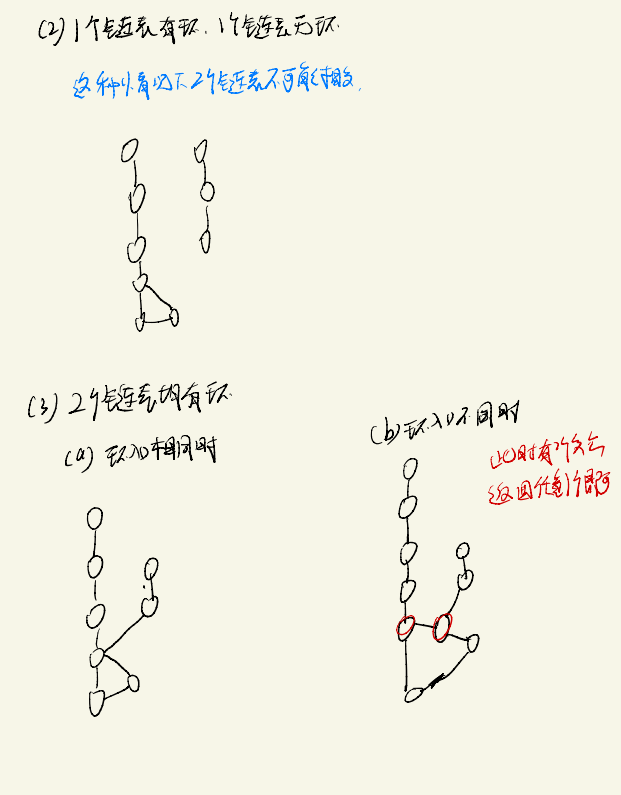 (2) 1个链表有环，1个链表无环.
这种情况下2个链表不可能相交.
(3) 2个链表均有环.
(a) 环入口相同时
(b) 环入口不同时
此时有2个交点
返回任意1个即可